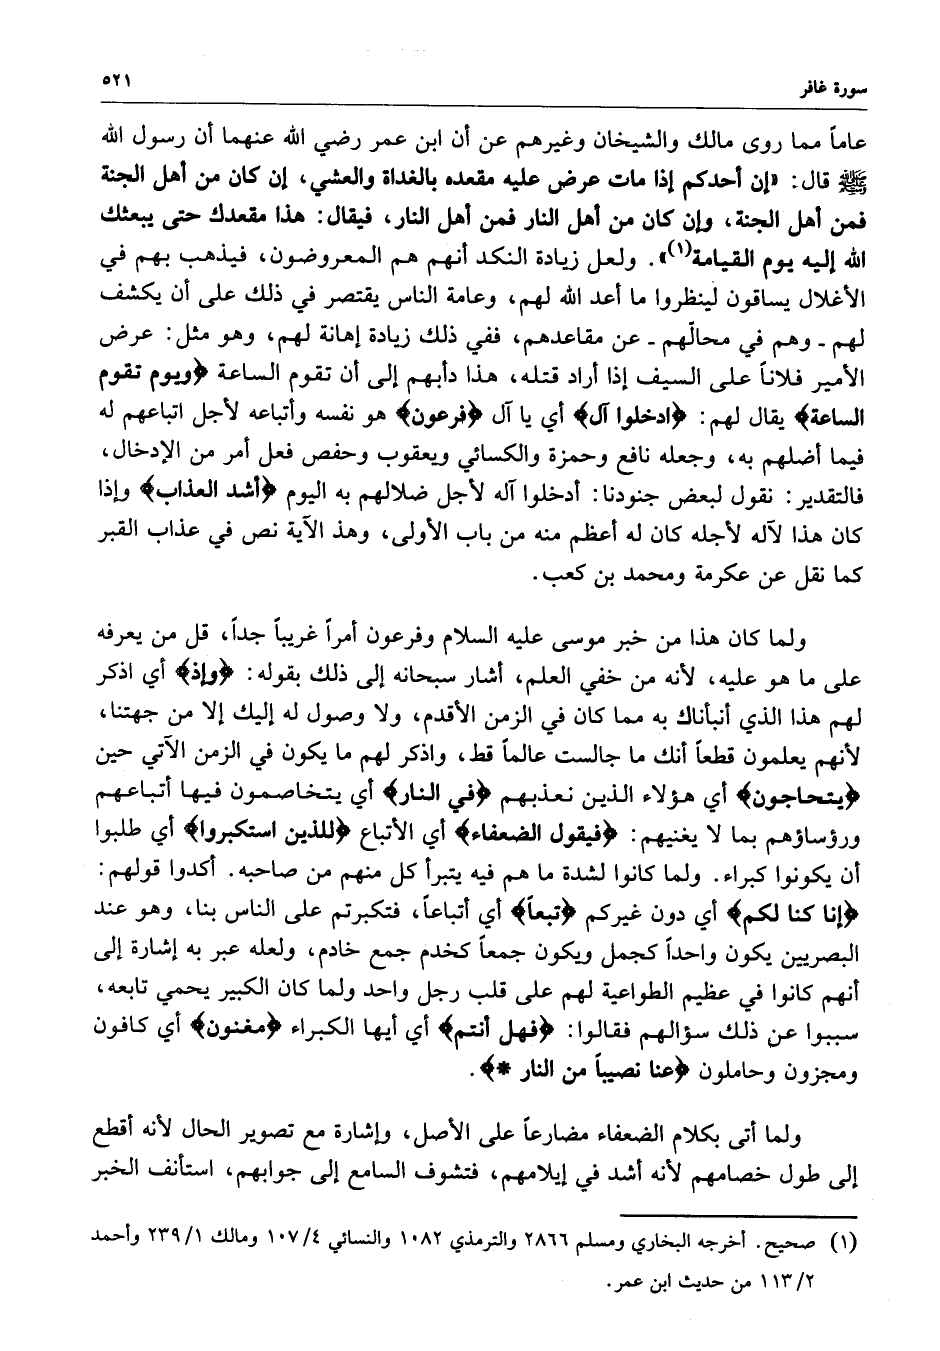 سورة غافر
٥٢١
عاماً مما روى مالك والشيخان وغيرهم عن أن ابن عمر رضي الله عنهما أن رسول الله
ﷺ قال: «إن أحدكم إذا مات عرض عليه مقعده بالغداة والعشي، إن كان من أهل الجنة
فمن أهل الجنة، وإن كان من أهل النار فمن أهل النار، فيقال: هذا مقعدك حتى يبعثك
الله إليه يوم القيامة(١)». ولعل زيادة النكد أنهم هم المعروضون، فيذهب بهم في
الأغلال يساقون لينظروا ما أعد الله لهم، وعامة الناس يقتصر في ذلك على أن يكشف
لهم ـ وهم في محالّهم ـ عن مقاعدهم، ففي ذلك زيادة إهانة لهم، وهو مثل: عرض
الأمير فلاناً على السيف إذا أراد قتله، هذا دأبهم إلى أن تقوم الساعة ﴿ويوم تقوم
الساعة﴾ يقال لهم: ﴿ادخلوا آل﴾ أي يا آل ﴿فرعون﴾ هو نفسه وأتباعه لأجل اتباعهم له
فيما أضلهم به، وجعله نافع وحمزة والكسائي ويعقوب وحفص فعل أمر من الإدخال،
فالتقدير: نقول لبعض جنودنا: أدخلوا آله لأجل ضلالهم به اليوم ﴿أشد العذاب﴾ وإذا
كان هذا لآله لأجله كان له أعظم منه من باب الأولى، وهذ الآية نص في عذاب القبر
كما نقل عن عكرمة ومحمد بن كعب.
ولما كان هذا من خبر موسى عليه السلام وفرعون أمراً غريباً جداً، قل من يعرفه
على ما هو عليه، لأنه من خفي العلم، أشار سبحانه إلى ذلك بقوله: ﴿وإذ﴾ أي اذكر
لهم هذا الذي أنبأناك به مما كان في الزمن الأقدم، ولا وصول له إليك إلا من جهتنا،
لأنهم يعلمون قطعاً أنك ما جالست عالماً قط، واذكر لهم ما يكون في الزمن الآتي حين
﴿يتحاجون﴾ أي هؤلاء الذين نعذبهم ﴿في النار﴾ أي يتخاصمون فيها أتباعهم
ورؤساؤهم بما لا يغنيهم: ﴿فيقول الضعفاء﴾ أي الأتباع ﴿للذين استكبروا﴾ أي طلبوا
أن يكونوا كبراء. ولما كانوا لشدة ما هم فيه يتبرأ كل منهم من صاحبه. أكدوا قولهم:
﴿إنا كنا لكم﴾ أي دون غيركم ﴿تبعاً﴾ أي أتباعاً، فتكبرتم على الناس بنا، وهو عند
البصريين يكون واحداً كجمل ويكون جمعاً كخدم جمع خادم، ولعله عبر به إشارة إلى
أنهم كانوا في عظيم الطواعية لهم على قلب رجل واحد ولما كان الكبير يحمي تابعه،
سببوا عن ذلك سؤالهم فقالوا: ﴿فهل أنتم﴾ أي أيها الكبراء ﴿مغنون﴾ أي كافون
ومجزون وحاملون ﴿عنا نصيباً من النار *﴾.
ولما أتى بكلام الضعفاء مضارعاً على الأصل، وإشارة مع تصوير الحال لأنه أقطع
إلى طول خصامهم لأنه أشد في إيلامهم، فتشوف السامع إلى جوابهم، استأنف الخبر
(١) صحيح. أخرجه البخاري ومسلم ٢٨٦٦ والترمذي ١٠٨٢ والنسائي ١٠٧/٤ ومالك ٢٣٩/١ وأحمد
١١٣/٢ من حديث ابن عمر.